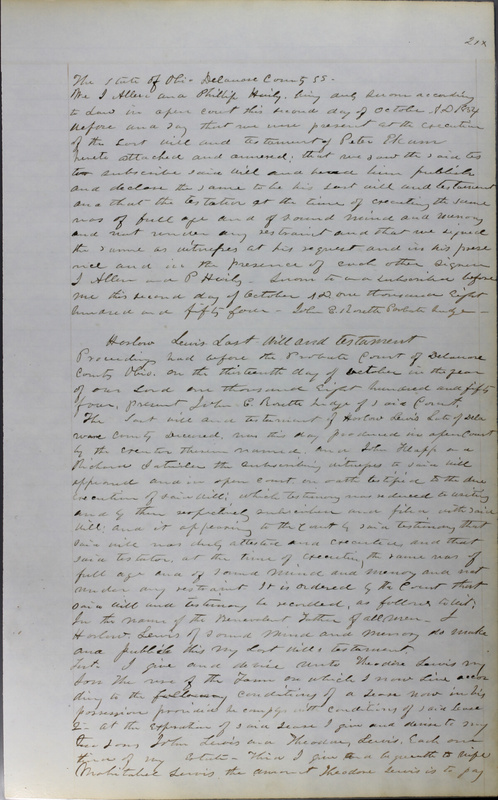 The State of Ohio Delaware County SS -
We I Allen and Phillip Haily being duly sworn according
to Law in open court this second day of October AD 1854
depose and say that we were present at the execution
of the last will and testament of Peter
hereto attached and annexed; that we saw the said tes
tor subscribe said will and heard him publish
and declare the same to be his last will and testament
and that the testator at the time of executing the same
was of full age and of sound mind and memory
and not under any restraint and that we signed
the same as witnesses at his request and in his prese
nce and in the presence of each other signed
I Allen and P Haily - Sworn to and subscribed before
me this second day of October AD one thousand Eight
hundred and fifty four - John E Routh Probate Judge -
Harlow Lewis Last Will and testament
Proceeding had before the Probate Court of Delaware
County Ohio. on the thirteenth day of October in the year
of our Lord one thousand Eight hundred and fifty
four, present John E. Routh Judge of said Court.
The last will and testament of Harlow Lewis late of Dela
ware County Deceased, was this day produced in open Court
by the executor therein named. and John Flapp and
Richard the subscribing witnesses to said Will
appeared and in open court on oath testified to the due
execution of said Will; which testimony was reduced to writing
and by them respectively subscribed and filed with said
Will; and it appearing to the Court by said testimony that
said will was duly attested and executed and that
said testator, at the time of executing the same was of
full age and of sound mind and memory and not
under any restraint It is ordered by the Court that
said Will and testimony be recorded, as follows to wit;
In the name of the Benevolent Father of all men - I
Harlow Lewis of sound mind and memory do make
and publish this my last will & testament.
1st. I give and devise unto Theodore Lewis my
Son the use of the Farm on which I now live accor
ding to the following conditions of a lease now in his
possession provided he comply with conditions of said lease
2 - at the expiration of said lease I give and devise to my
two sons John Lewis and Theodore Lewis. Each one
third of my Estate - Third I give and bequeath to Wife
Mehitabel Lewis the amount Theodore Lewis is to pay